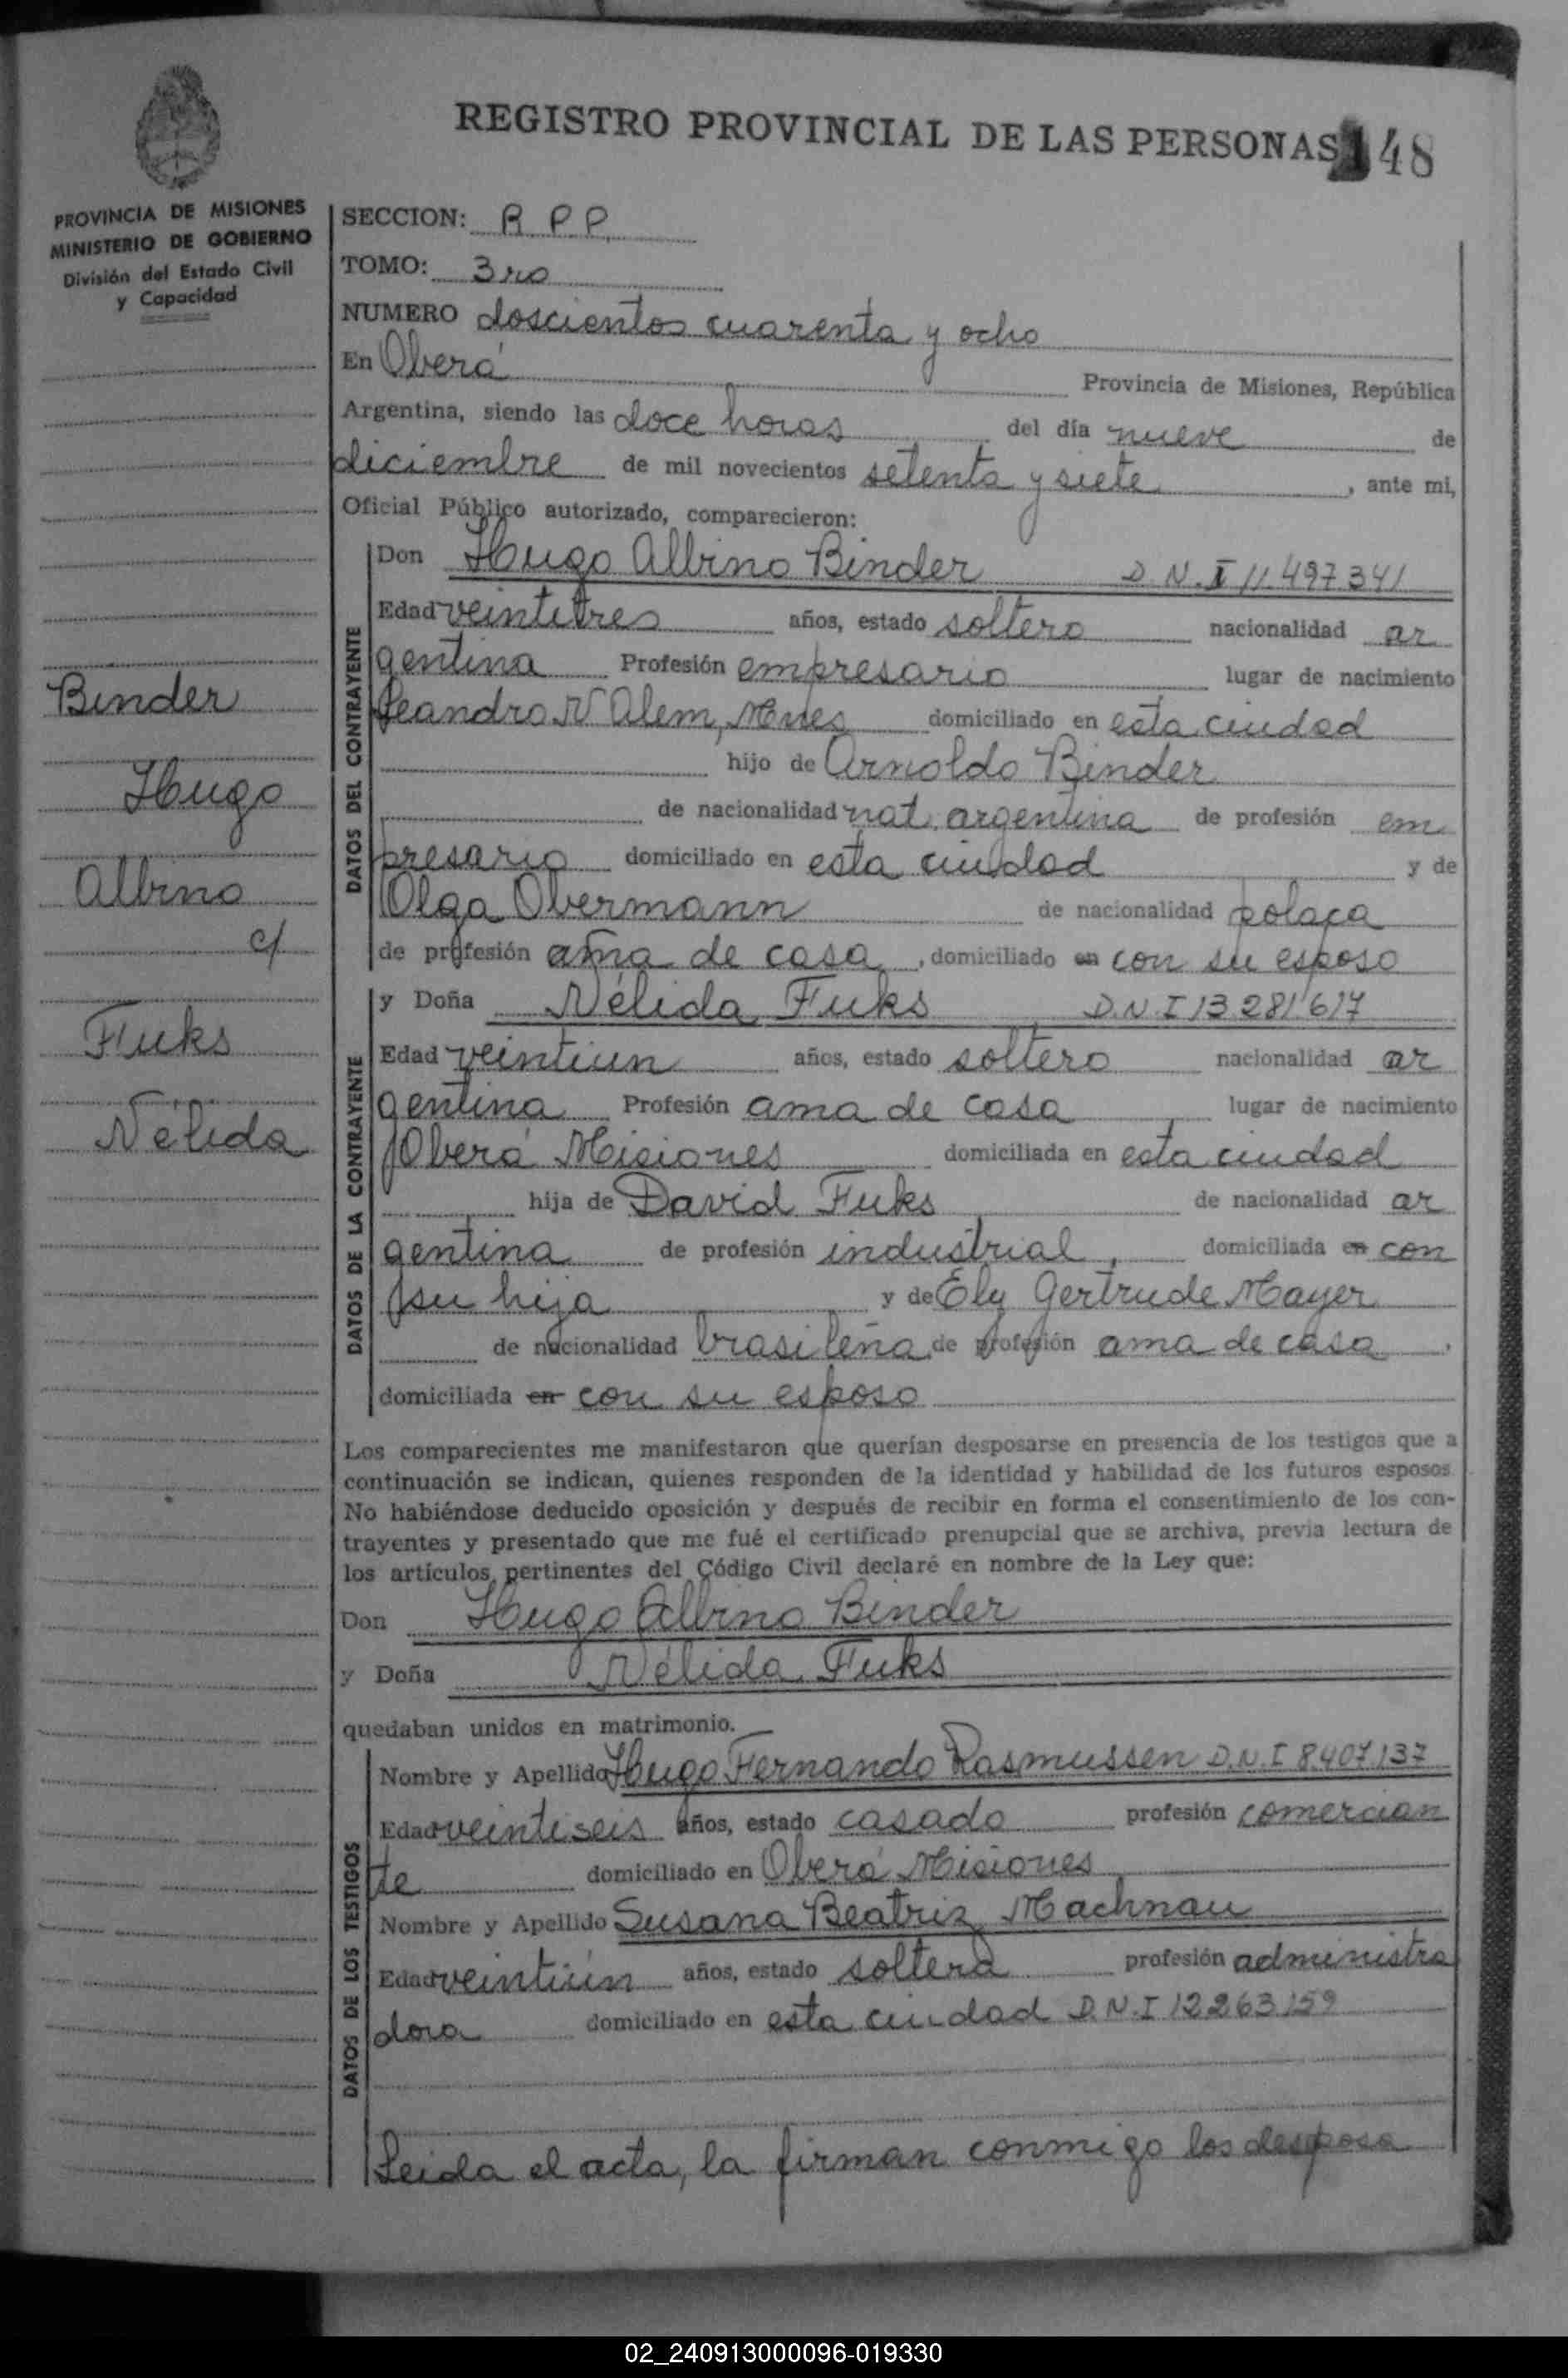 REGISTRO PROVINCIAL DE LAS PERSONAS 148
PROVINCIA DE MISIONES
MINISTERIO DE GOBIERNO
División del Estado Civil
y Capacidad
Binder
Hugo
Albino
c/
Fuks
Nélida
SECCION: R P P
TOMO: 3ro
NUMERO doscientos cuarenta y ocho
En Oberá Provincia de Misiones, República
Argentina, siendo las doce horas del día nueve de
diciembre de mil novecientos setenta y siete, ante mi,
Oficial Público autorizado, comparecieron:
DATOS DEL CONTRAYENTE
Don Hugo Albino Binder D.N.I 11.497.341
Edad veintitres años, estado soltero nacionalidad ar
gentina Profesión empresario lugar de nacimiento
Leandro N Alem, Mnes domiciliado en esta ciudad
hijo de Arnoldo Binder
de nacionalidad nat. argentina de profesión em
presario domiciliado en esta ciudad y de
Olga Obermann de nacionalidad polaca
de profesión ama de casa, domiciliado en con su esposo
DATOS DE LA CONTRAYENTE
y Doña Nélida Fuks D.N.I 13.281.617
Edad veintiun años, estado soltero nacionalidad ar
gentina Profesión ama de casa lugar de nacimiento
Oberá Misiones domiciliada en esta ciudad
hija de David Fuks de nacionalidad ar
gentina de profesión industrial, domiciliada en con
su hija y de Ely Gertrude Mayer
de nacionalidad brasileña de profesión ama de casa,
domiciliada en con su esposo
Los comparecientes me manifestaron que querían desposarse en presencia de los testigos que a
continuación se indican, quienes responden de la identidad y habilidad de los futuros esposos.
No habiéndose deducido oposición y después de recibir en forma el consentimiento de los con-
trayentes y presentado que me fué el certificado prenupcial que se archiva, previa lectura de
los artículos pertinentes del Código Civil declaré en nombre de la Ley que:
Don Hugo Albino Binder
y Doña Nélida Fuks
quedaban unidos en matrimonio.
DATOS DE LOS TESTIGOS
Nombre y Apellido Hugo Fernando Rasmussen D.N.I 8.407.137
Edad veintiseis años, estado casado profesión comercian
te domiciliado en Oberá Misiones
Nombre y Apellido Susana Beatriz Machnau
Edad veintiún años, estado soltera profesión administra
dora domiciliado en esta ciudad D.N.I 12.263.159
Leida el acta, la firman conmigo los desposa
02_240913000096-019330